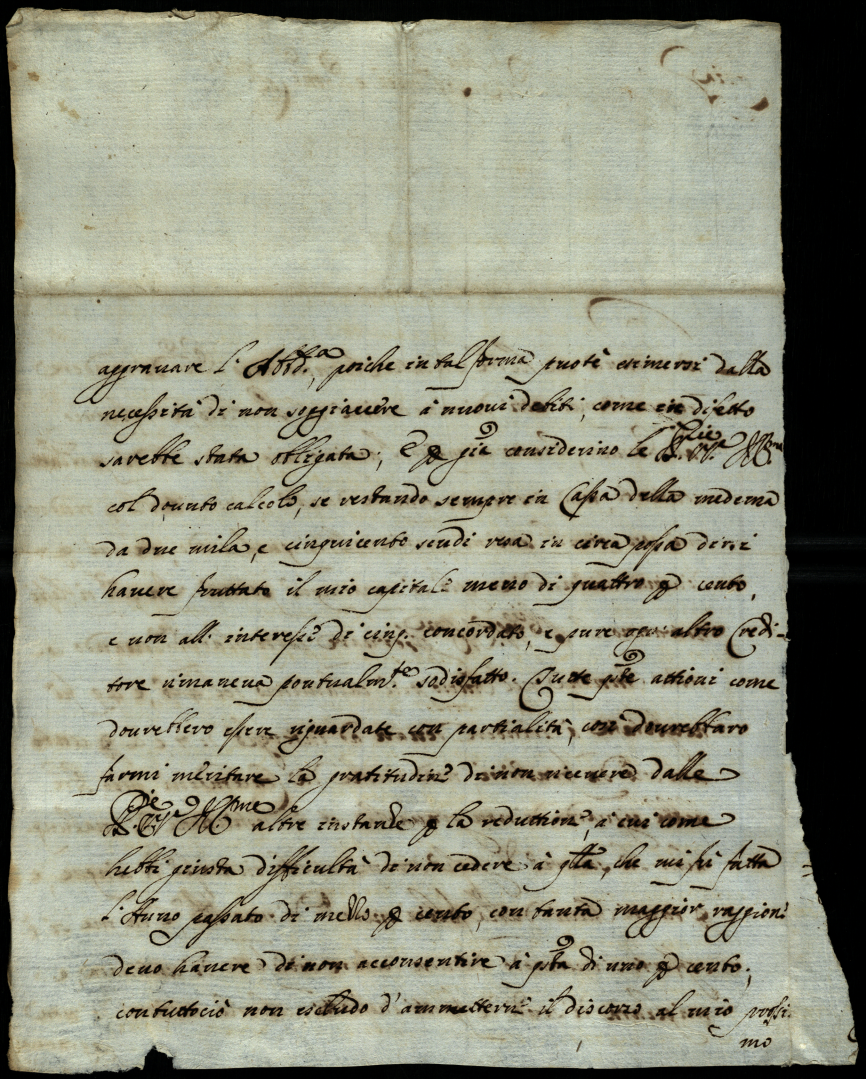 aggravare l'Abbd.ª, poiche in tal forma puotè esimersi dalla
necessità di non soggiacere à nuovi debiti, come in difetto
sarebbe stata obligata; E p già considerino le Ill.me
col dovuto calcolo, se restando sempre in Cassa della medema
da due mila, e cinquicento scudi resa in circa possa dirsi
havere fruttato il mio capitale meno di quattro p cento,
e non all' interesse di cinq. concordato, e pure ogni altro Credi-
tore rimaneva pontualm.te sodisfatto. Tutte q.te attioni come
dovrebbero essere riguardate con partialità, così dovrebbero
farmi meritare la gratitudine di non ricevere dalle
Ill.me altre instanze p la reduttione, à cui come
hebbi giusta difficultà di non cedere à q.lla, che mi fù fatta
l'Anno passato di mezzo p cento, con tanta maggior raggione
devo havere di non acconsentire à q.sta di uno p cento;
contuttociò non escludo d'ammetterne il discorso al mio prossi
mo